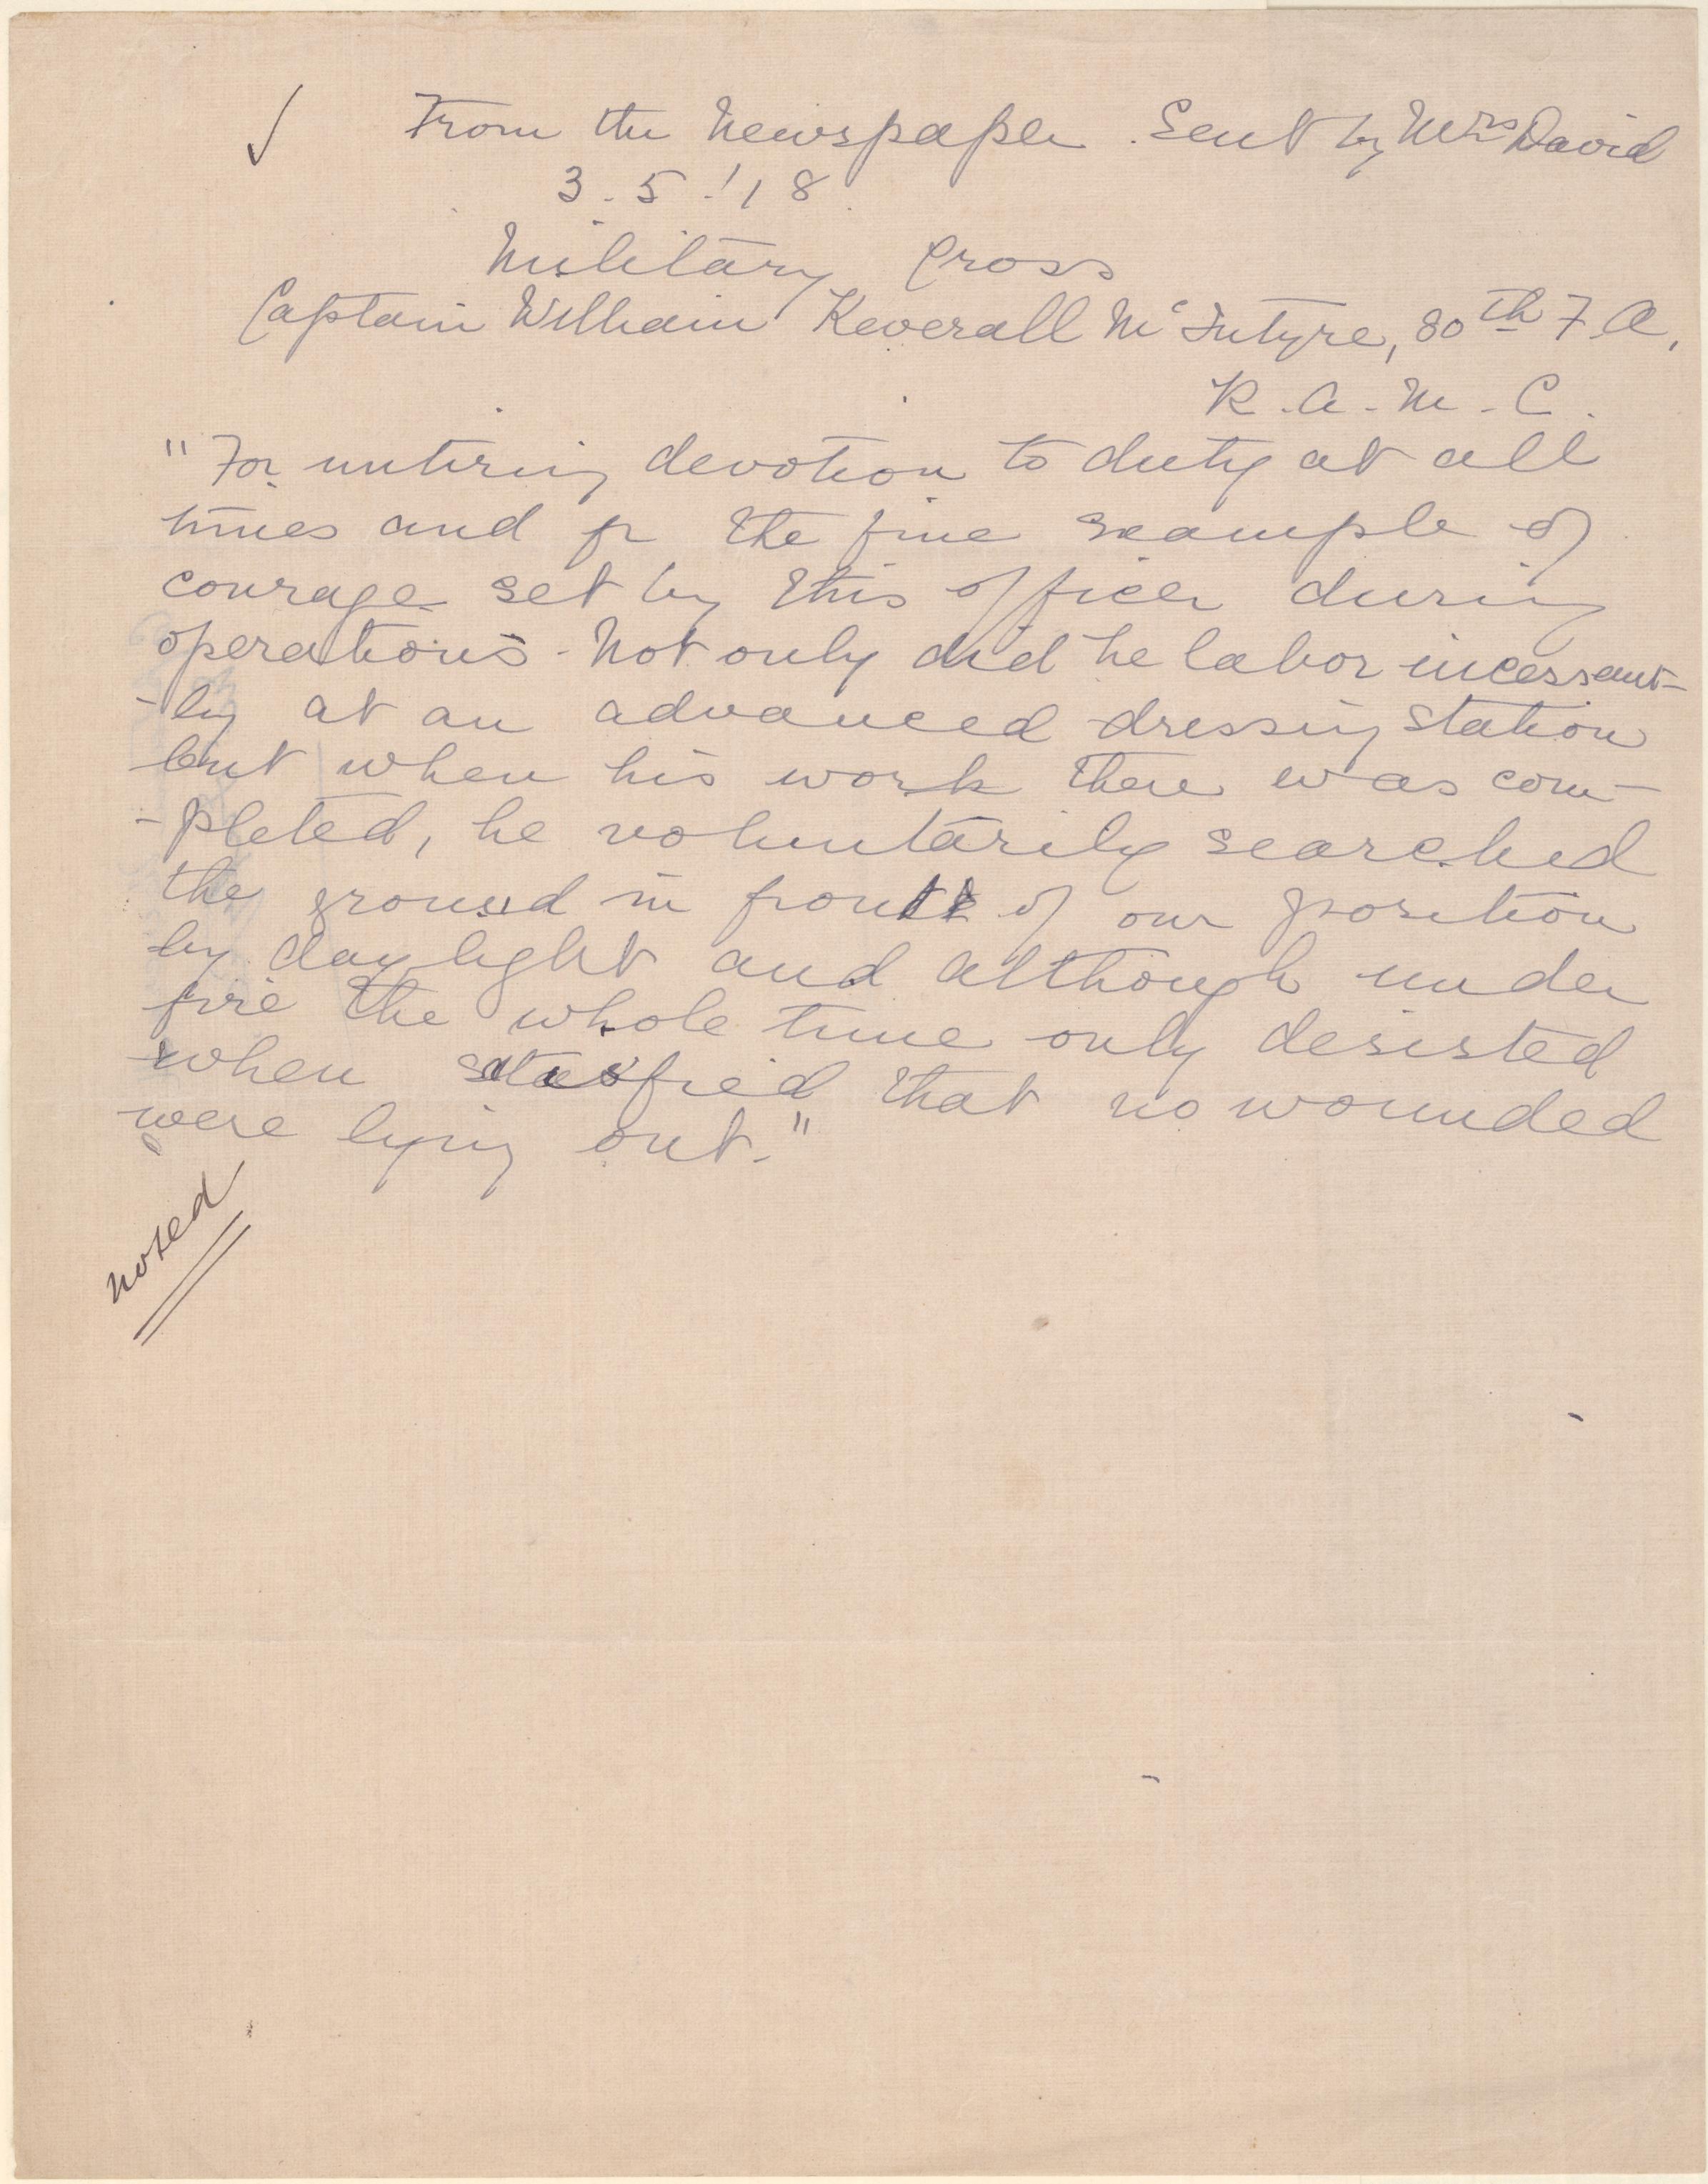 ✓ From the Newspaper. Sent by Mrs David
3.5.'18.
Military Cross
Captain William Keverall McIntyre, 80th F.A.,
R.A.M.C.
"For untiring devotion to duty at all
times and for the fine example of
courage set by this officer during
operations. Not only did he labor incessant-
-ly at an advanced dressing station
but when his work there was com-
-pleted, he voluntarily searched
the ground in front of our position
by daylight and although under
fire the whole time only desisted
when satisfied that no wounded
were lying out."
noted